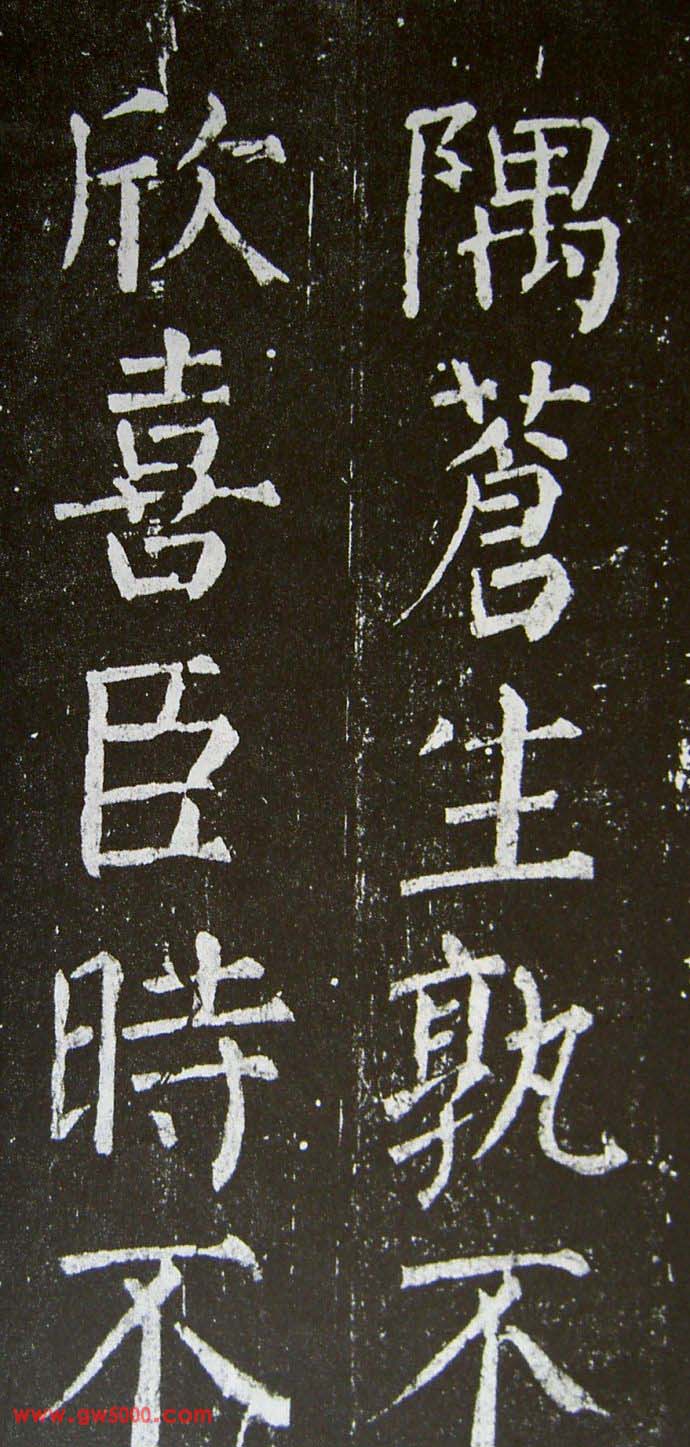 隅蒼生孰不
欣喜臣時不
www.gw5000.com